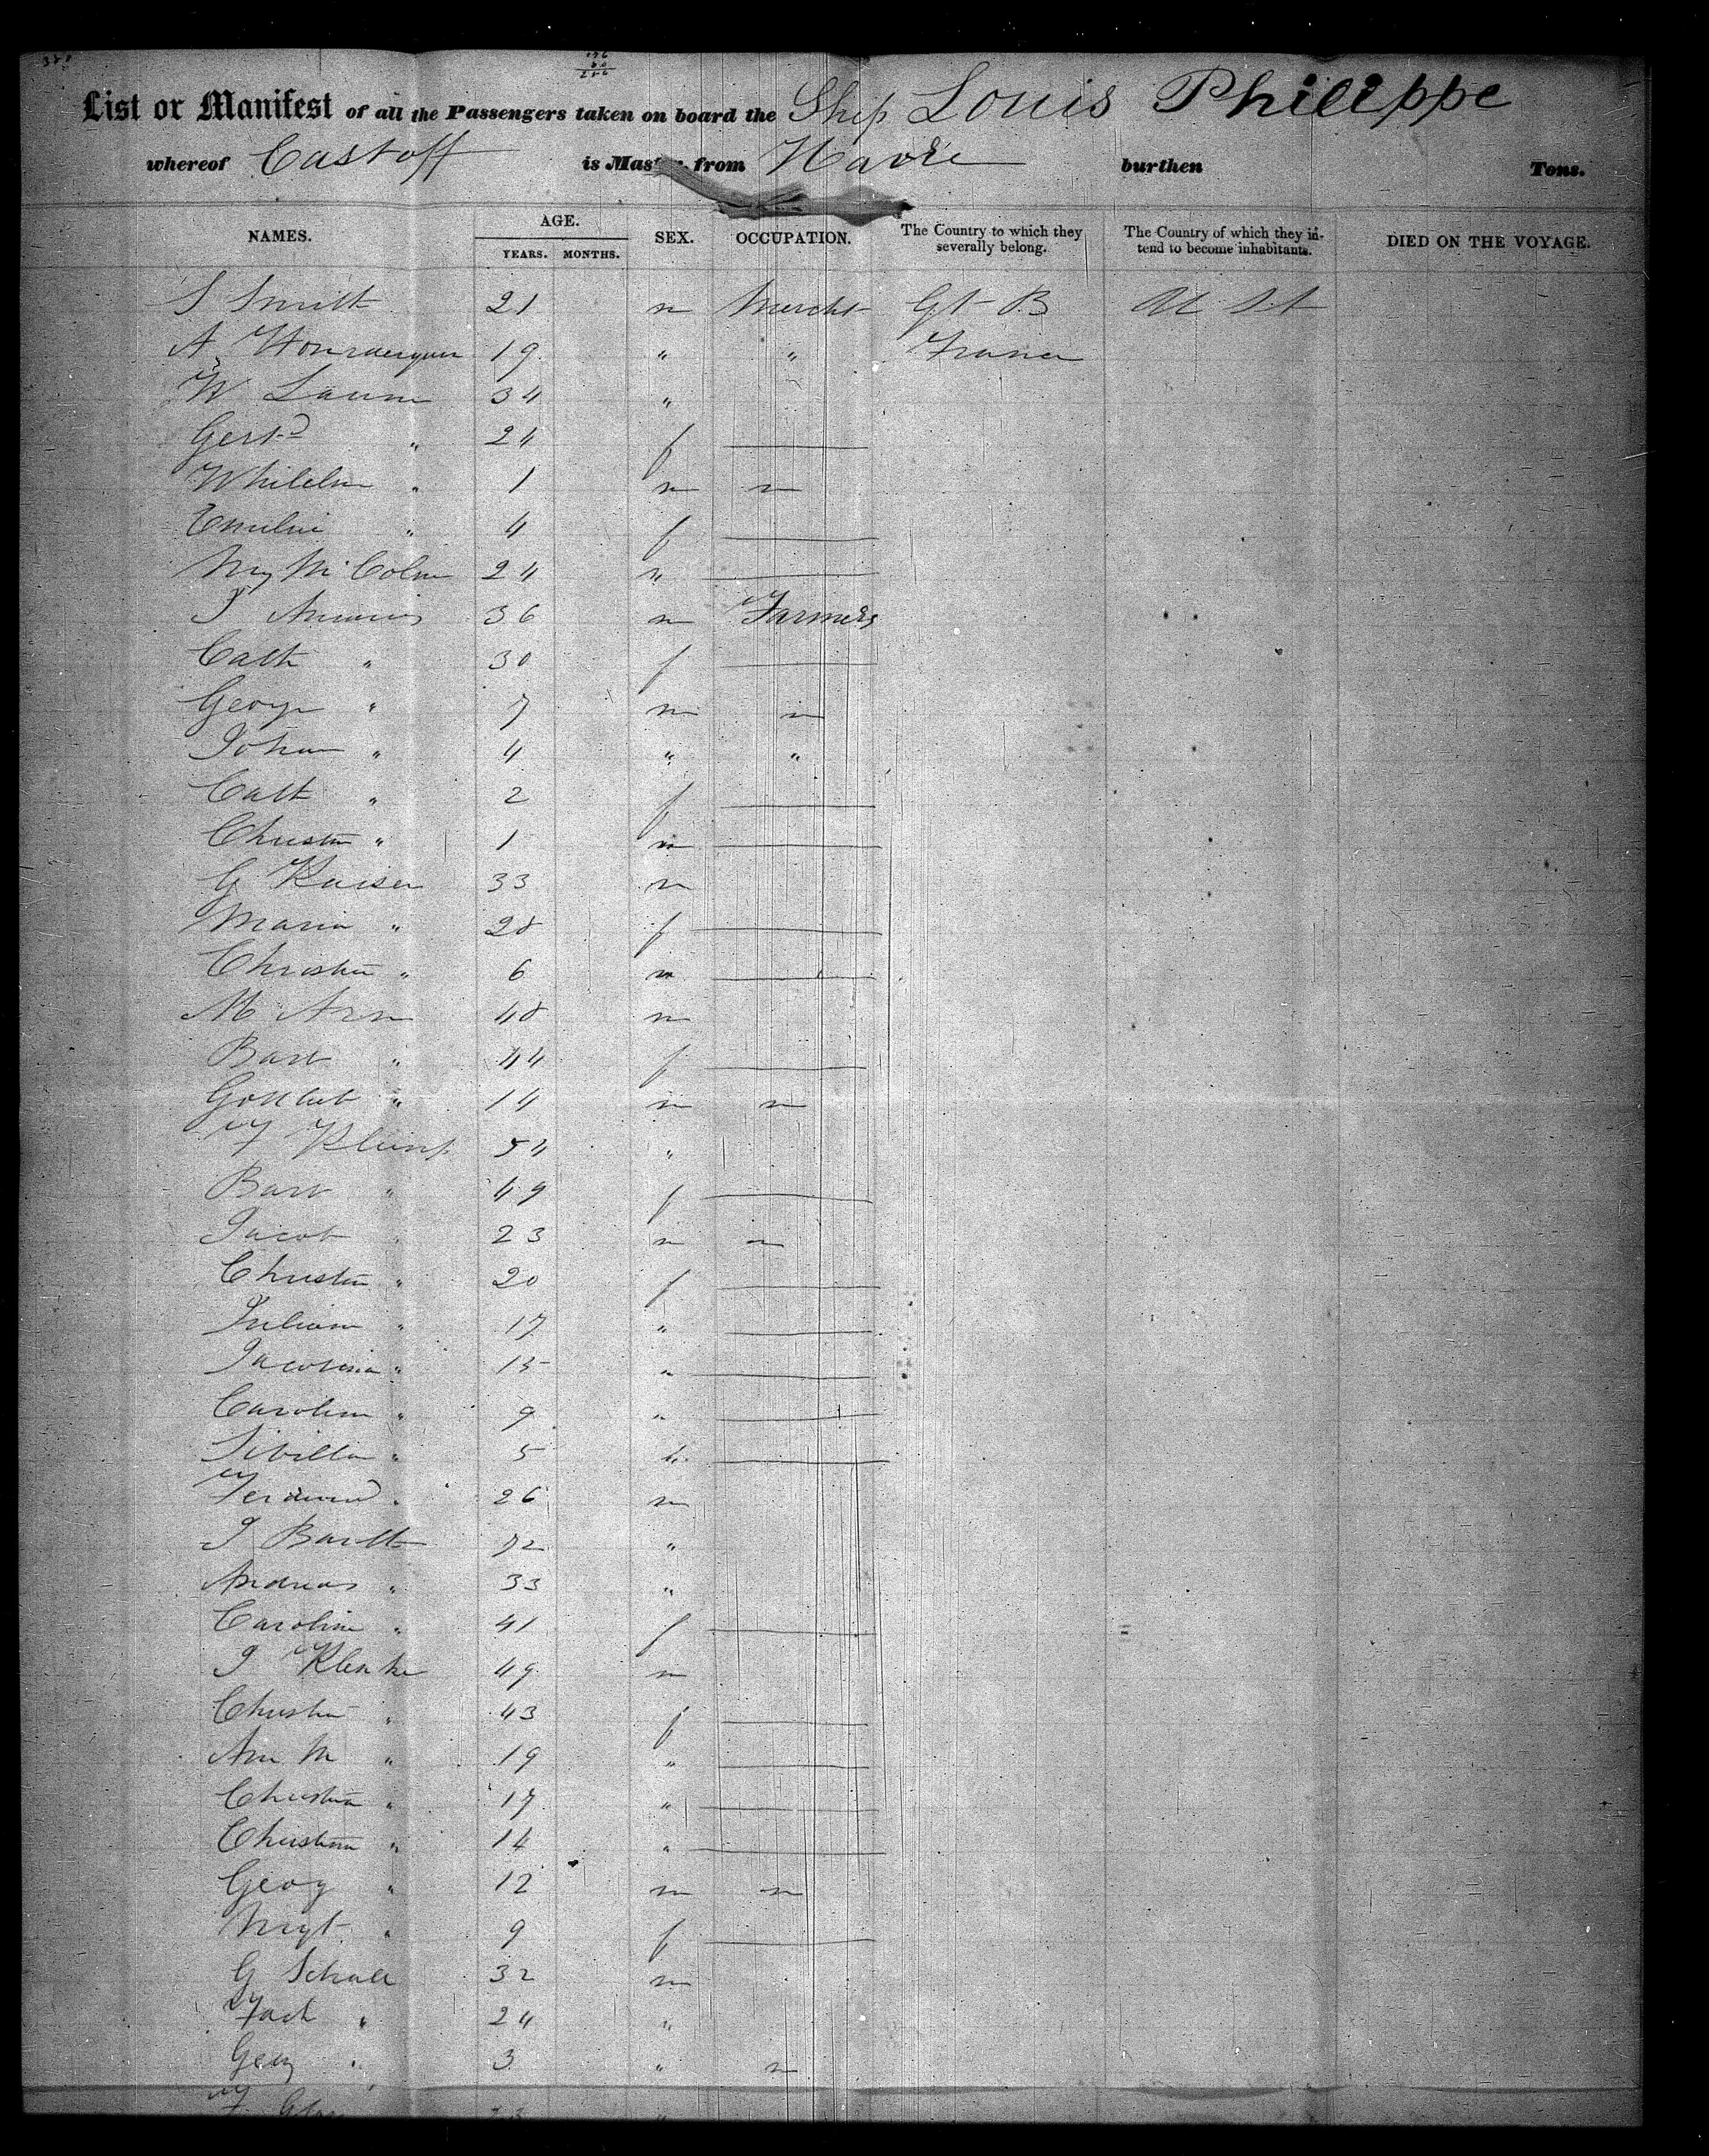 176
80
256
List or Manifest of all the Passengers taken on board the Ship Louis Philippe
whereof Castoff is Master, from Havre burthen Tons.
NAMES. AGE. YEARS. MONTHS. SEX. OCCUPATION. The Country to which they severally belong. The Country of which they intend to become inhabitants. DIED ON THE VOYAGE.
S Smith 21 m Mercht Gt B U St
A 19 " " France
W Laum 34 "
Gertd " 24 f
Whilelm " 1 m m
Emilie " 4 f
24 "
36 m Farmers
Cath " 30 f
George " 7 m m
Johan " 4 " "
Cath " 2 f
Christn " 1 m
G Kaiser 33 m
Maria " 28 f
Christn " 6 m
M Arn 48 m
Barb " 44 f
Gottlieb " 14 m m
F Klump 54 "
Barb " 49 f
Jacob " 23 m m
Christn " 20 f
Juliana " 17 "
Jacobina " 15 "
Carolina " 9 "
Sibilla " 5 "
Ferdinand " 26 m
J Barth 72 "
Andreas " 33 "
Caroline " 41 f
J Klenke 49 m
Christn " 43 f
Ann M " 19 "
Christina " 17 "
Christina " 14 "
Georg " 12 m m
Mrgt " 9 f
G Schall 32 m
" 24 "
Georg " 3 " m
F 23 "